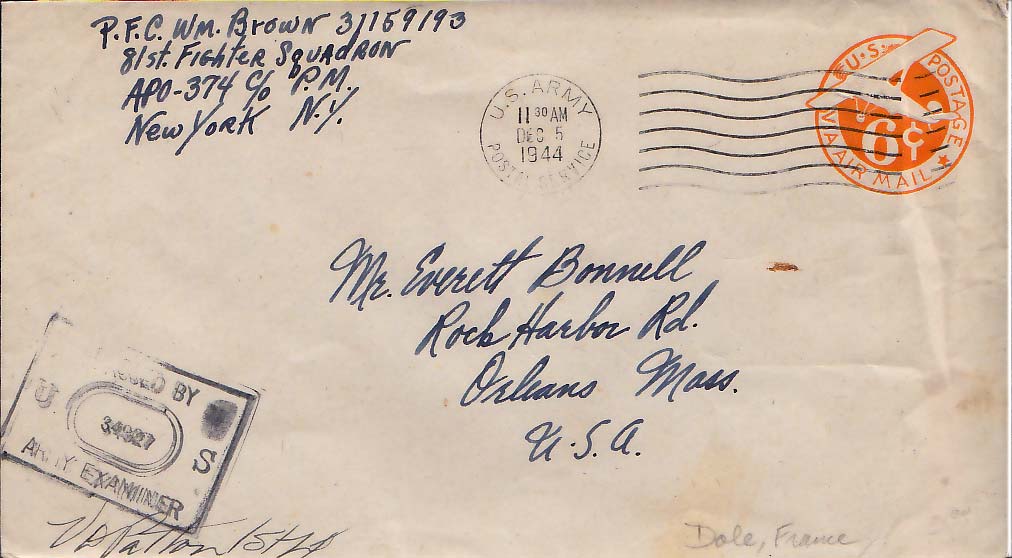 P.F.C. Wm. Brown 31159193
81st. Fighter Squadron
APO-374 c/o P.M.
New York N.Y.
U.S. ARMY
11 30 AM
DEC 5
1944
POSTAL SERVICE
U.S. POSTAGE
6¢
VIA AIR MAIL
Mr. Everett Bonnell
Rock Harbor Rd.
Orleans Mass.
U.S.A.
BY
U 34927 S
ARMY EXAMINER
Patton 1st Lt
Dole, France